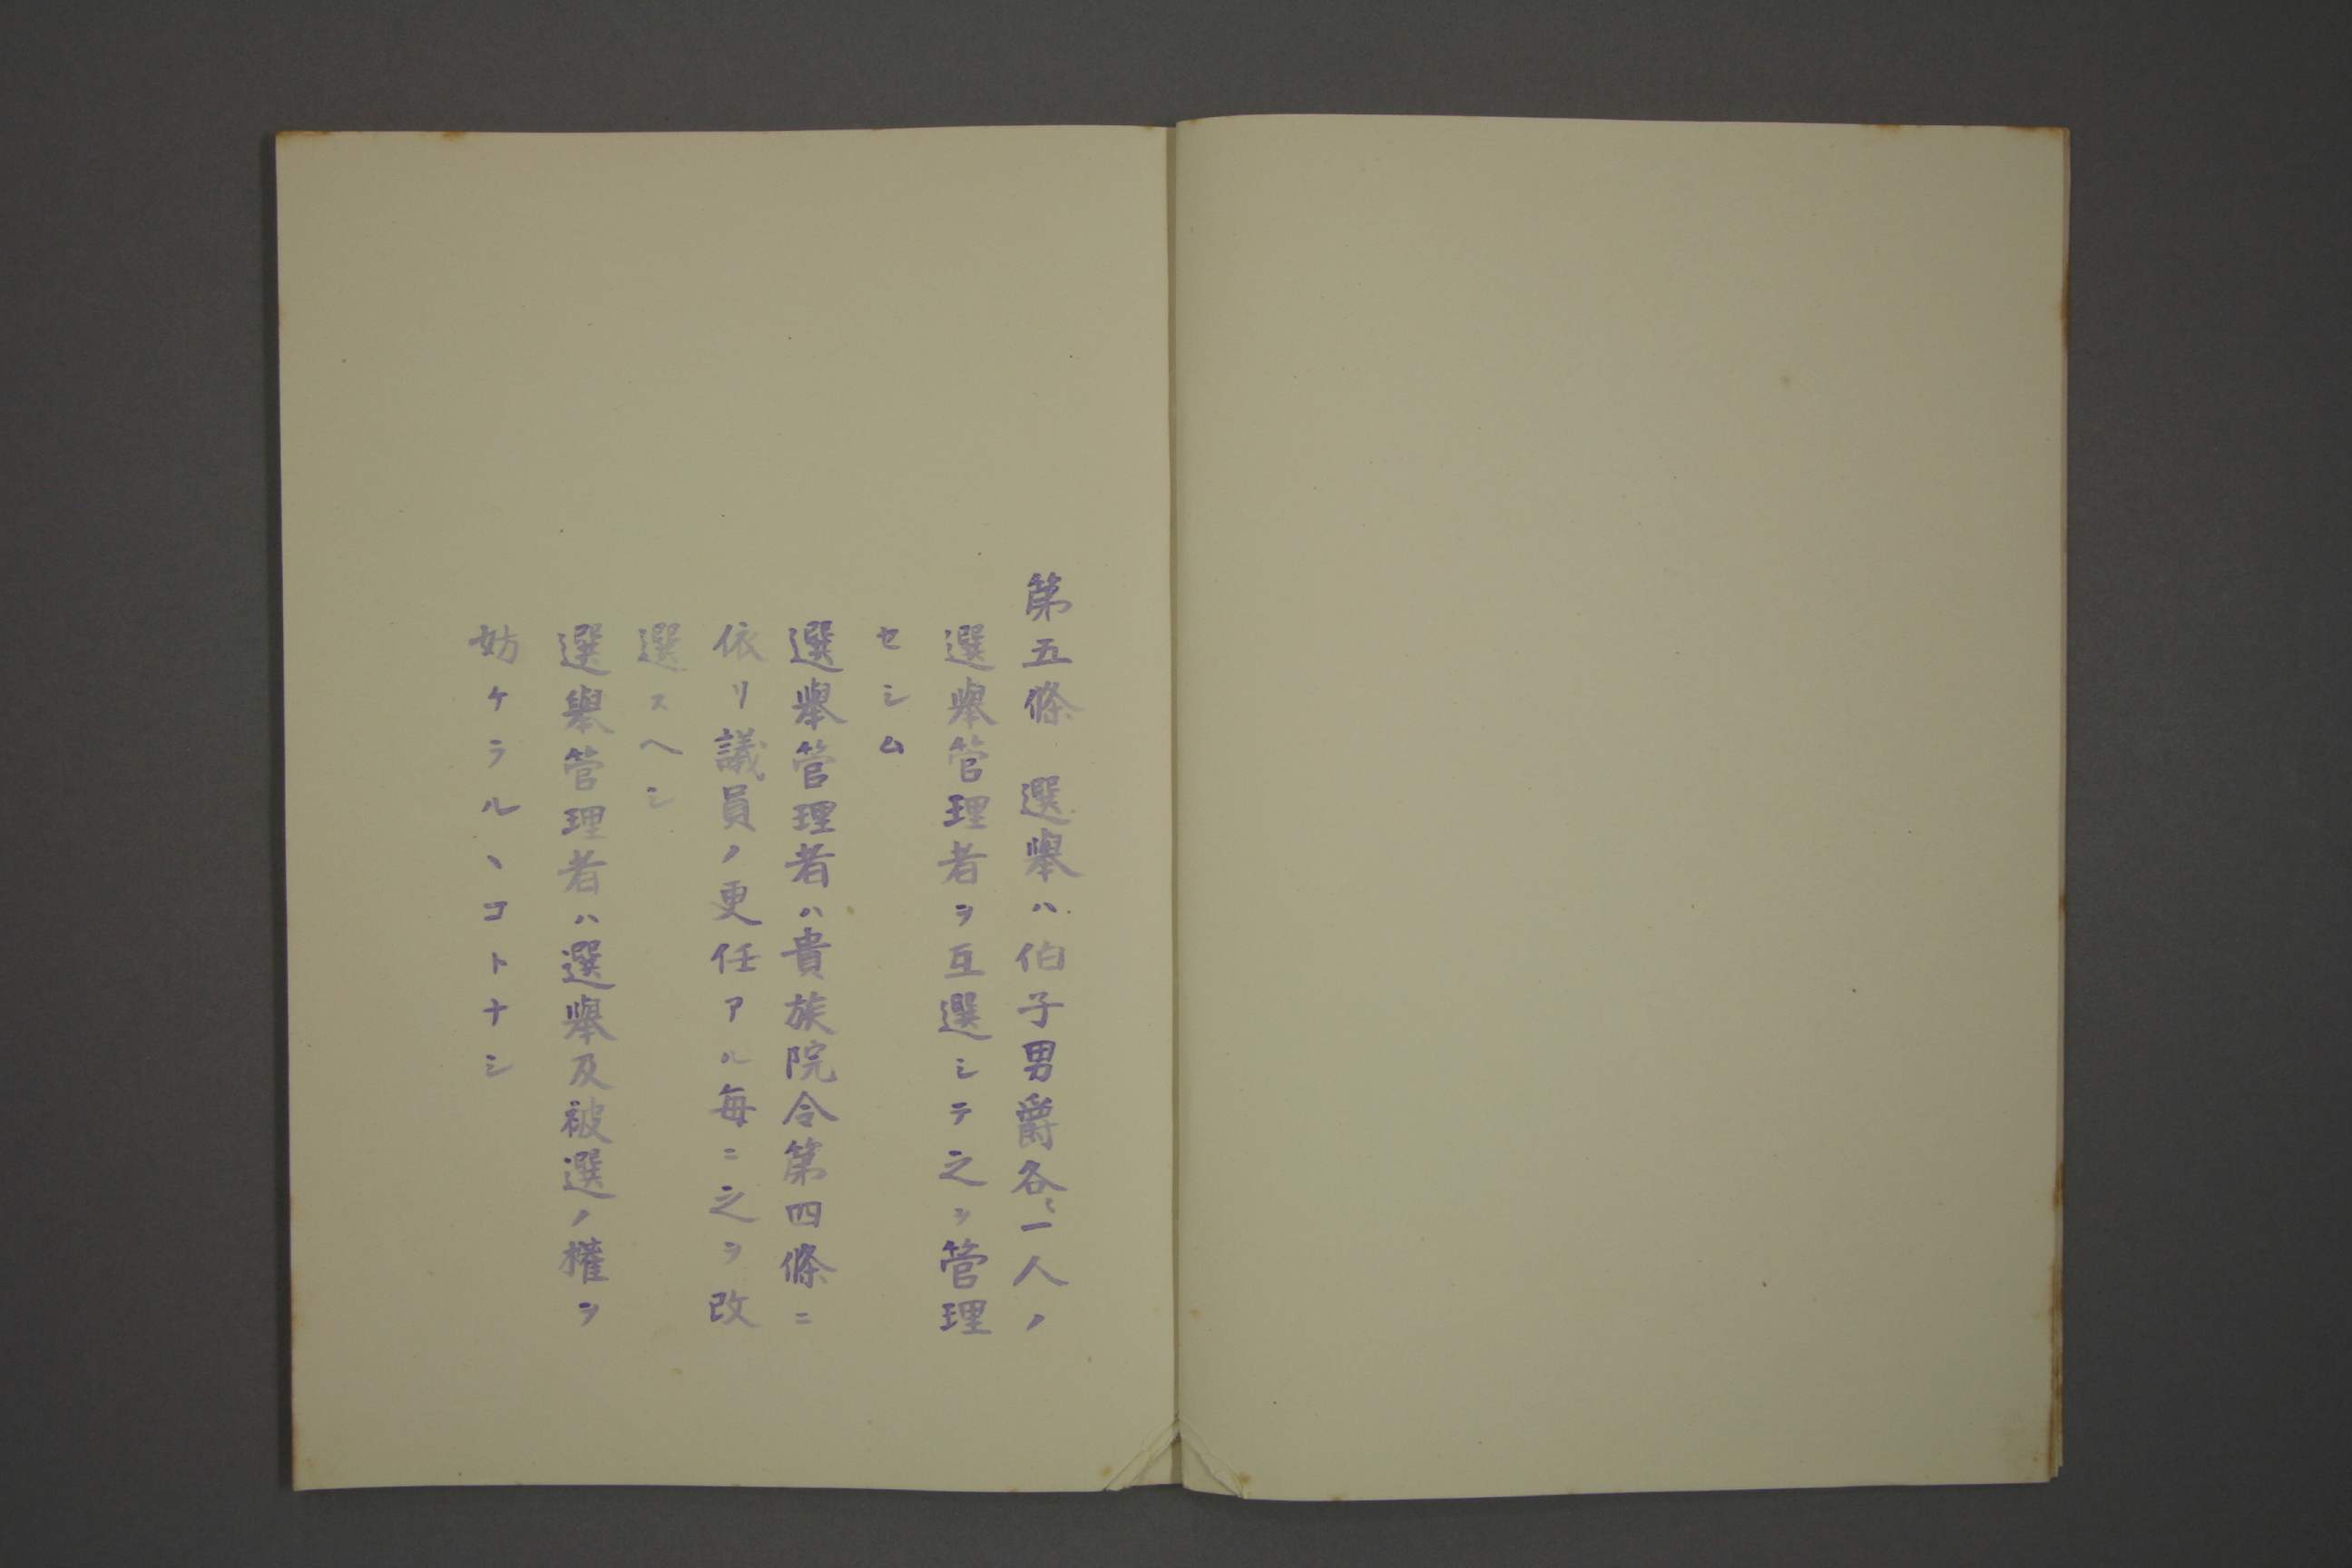 第五條　選擧ハ伯子男爵各〻一人ノ
選擧管理者ヲ互選シテ之ヲ管理
セシム
選擧管理者ハ貴族院令第四條ニ
依リ議員ノ更任アル每ニ之ヲ改
選スヘシ
選擧管理者ハ選擧及被選ノ權ヲ
妨ケラルヽコトナシ